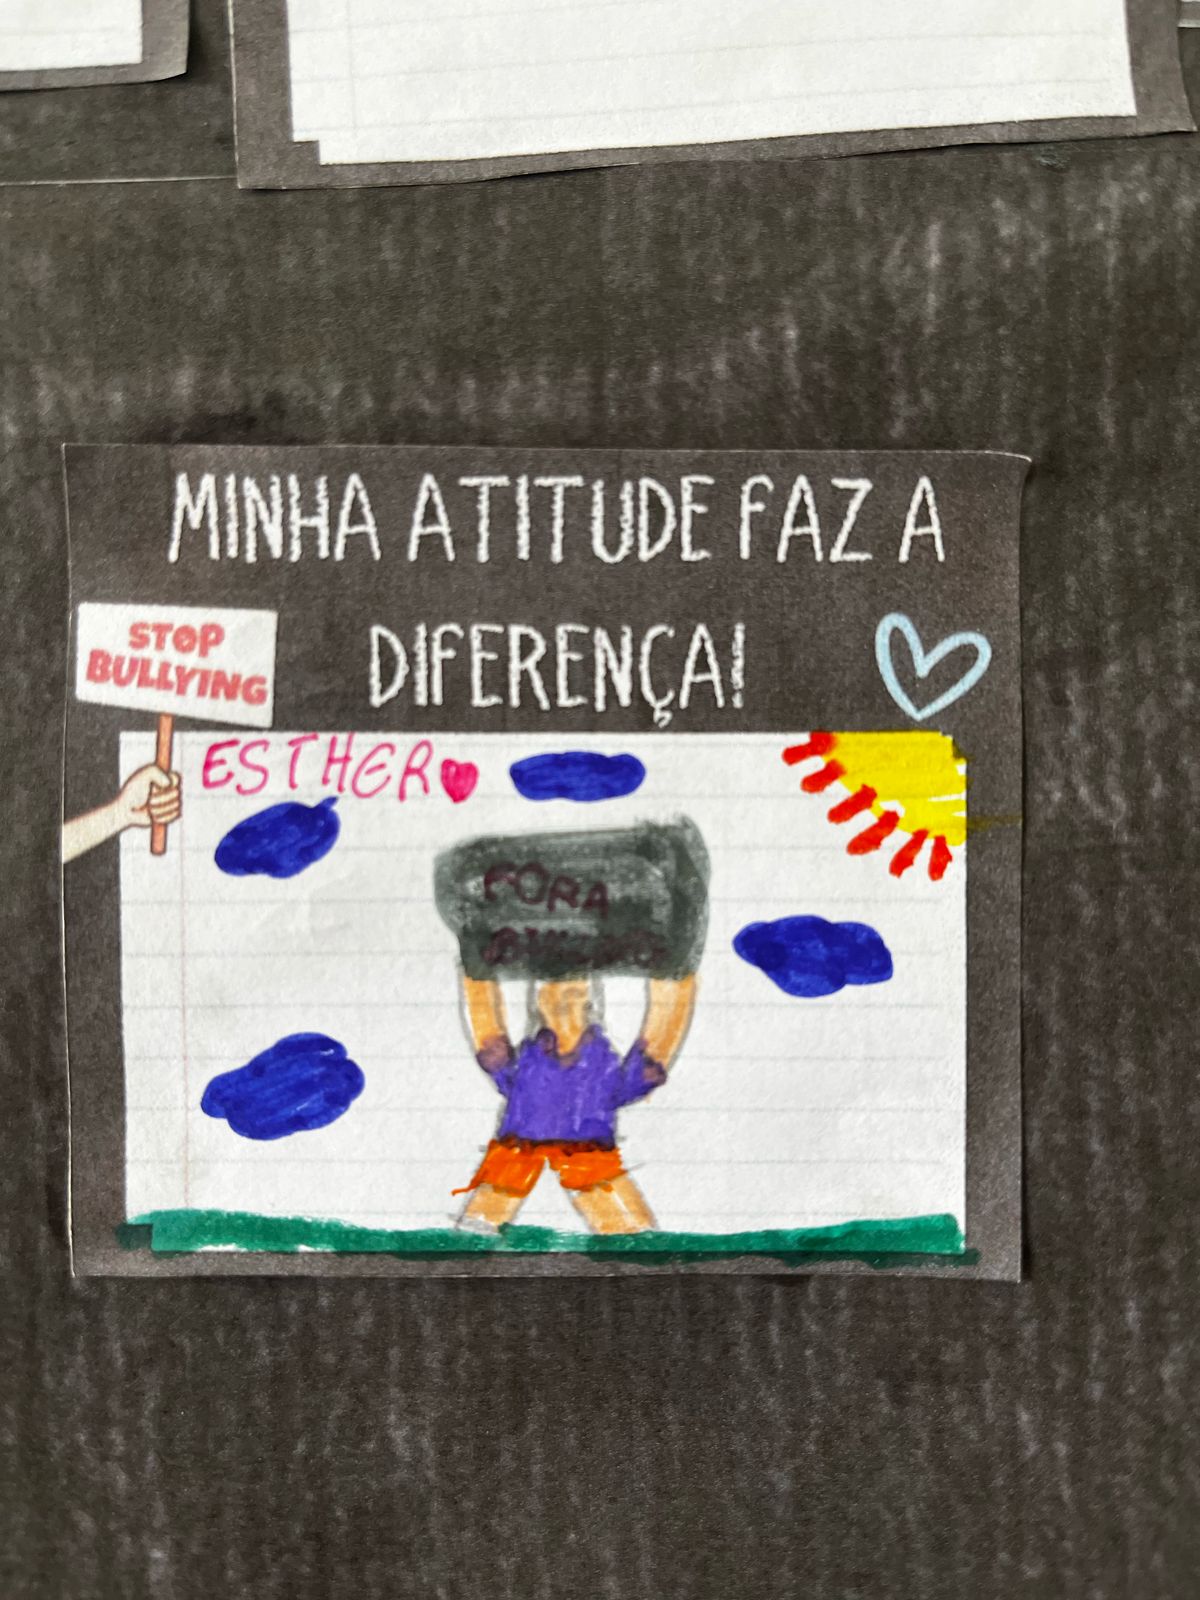 MINHA ATITUDE FAZ A
DIFERENÇA!
STOP
BULLYING
ESTHER
FORA